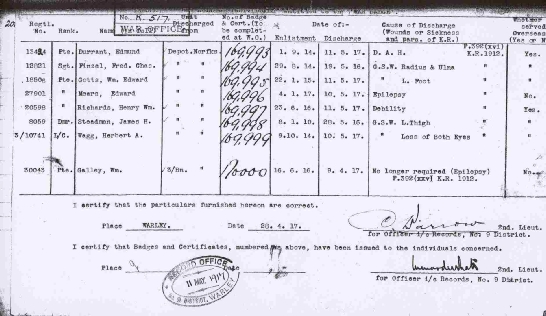 20.
No. K. 517.
WAR OFFICE
Regtl. No. Rank. Name. Unit Discharged No. of Badge & Cert. (To be completed at W.O.) Date of:- Enlistment Discharge Cause of Discharge (Wounds or Sickness and para. of K.R.) Whether served Overseas (Yes or No
P.392(xvi) K.R. 1912.
Pte. Durrant, Edmund Depot. Norfks. 169,993 1. 9. 14. 11. 5. 17. D. A. H. Yes.
Sgt. Finzel, Fred. Chas. " " 169,994 G.S.W. Radius & Ulna " "
Pte. Gotts, Wm. Edward " " 169,995 22. 1. 15. 11. 5. 17. " L. Foot " "
27901 " Meers, Edward " " 169,996 4. 1. 17. 10. 5. 17. Epilepsy " No.
20598 " Richards, Henry Wm. " " 169,997 23. 6. 16. 11. 5. 17. Debility " Yes.
8059 Dmr. Steadman, James H. " " 169,998 G.S.W. L.Thigh " "
3/10741 L/C. Wagg, Herbert A. " " 169,999 9.10. 14. 10. 5. 17. " Loss of Both Eyes " "
30043 Pte. Galley, Wm. 3/Bn. " 170000 16. 6. 16. 9. 4. 17. No longer required (Epilepsy) P.392(xxv) K.R. 1912. No.
I certify that the particulars furnished hereon are correct.
Place WARLEY. Date 28. 4. 17. 2nd. Lieut.
for Officer i/c Records, No: 9 District.
I certify that Badges and Certificates, numbered as above, have been issued to the individuals concerned.
Place Date 2nd. Lieut.
for Officer i/c Records, No. 9 District.
RECORD OFFICE
11 MAY. 1917
No. 9 DISTRICT, WARLEY